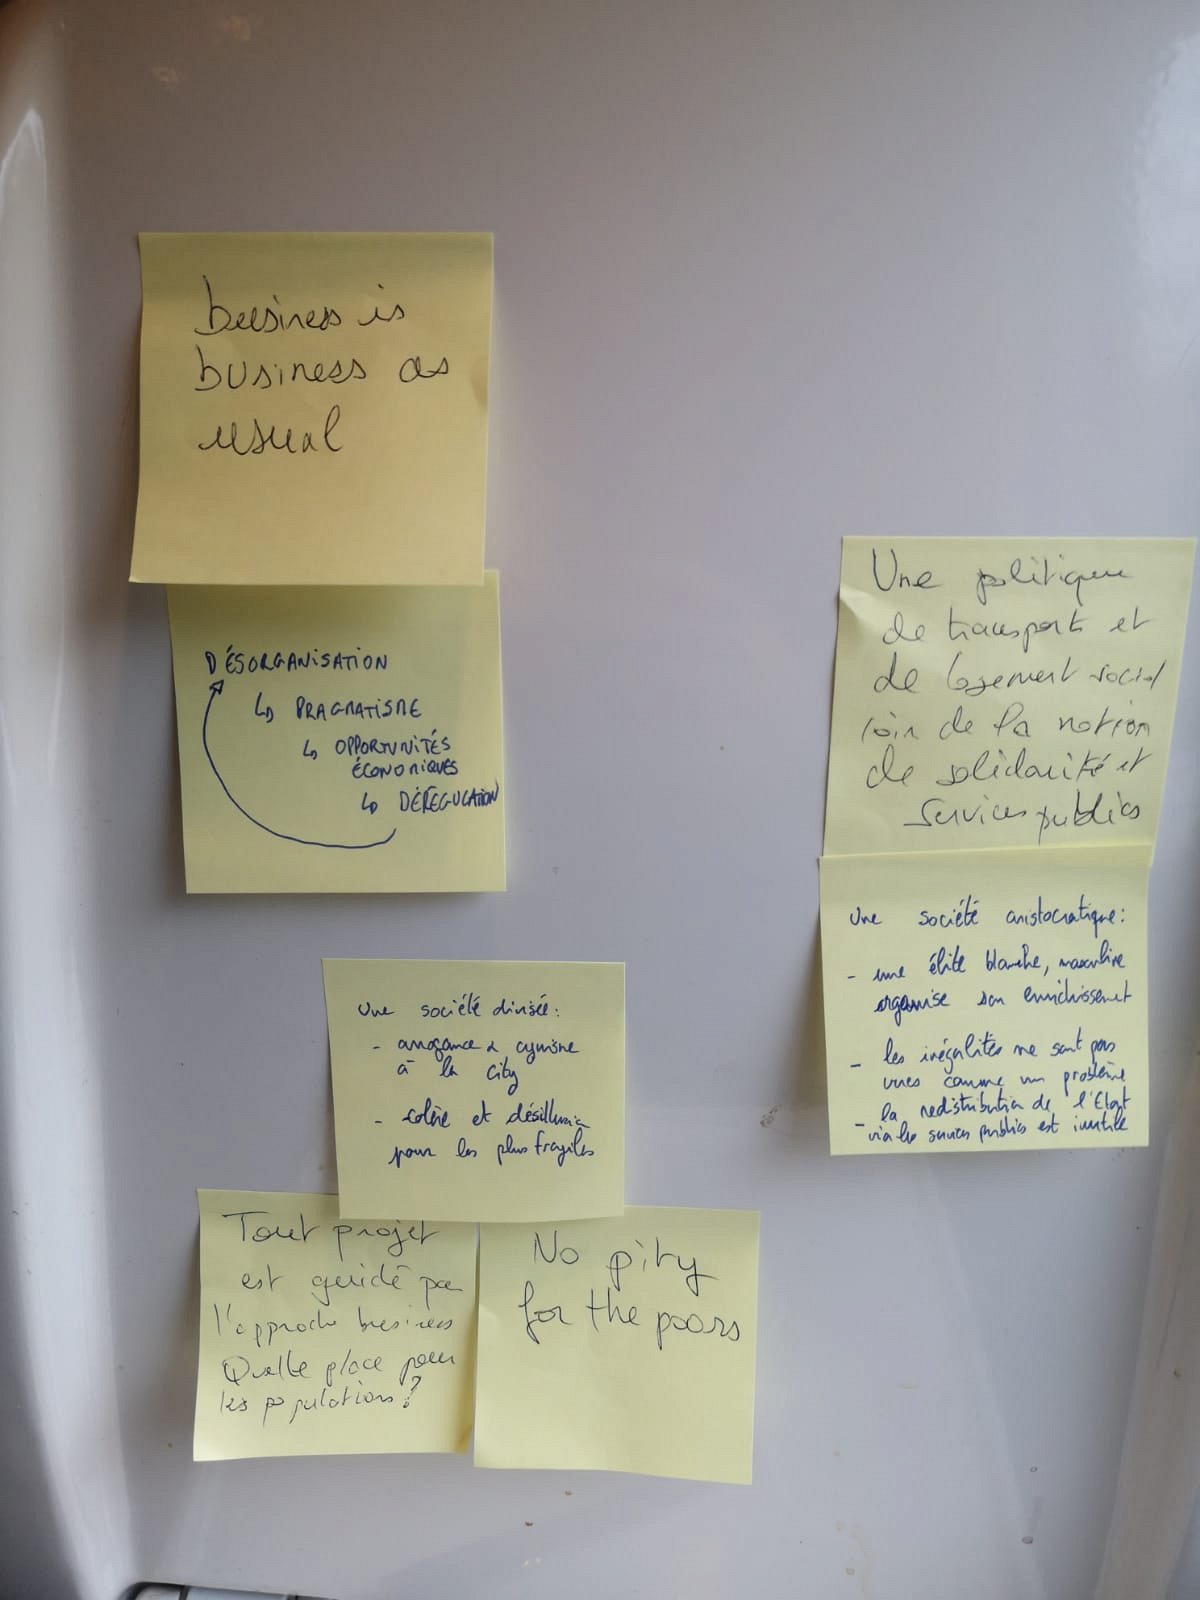 business is
business as
usual
DÉSORGANISATION
↳ PRAGMATISME
↳ OPPORTUNITÉS
ÉCONOMIQUES
↳ DÉRÉGULATION
Une politique
de transports et
de logement social
loin de la notion
de solidarité et
Services publics
Une société aristocratique:
- une élite blanche, masculine
organise son enrichissement
- les inégalités ne sont pas
vues comme un problème
- la redistribution de l'Etat
via les services publics est inutile
Une société divisée:
- arrogance & cynisme
à la City
- colère et désillusion
pour les plus fragiles
Tout projet
est guidé par
l'approche business
Quelle place pour
les populations?
No pity
for the poors